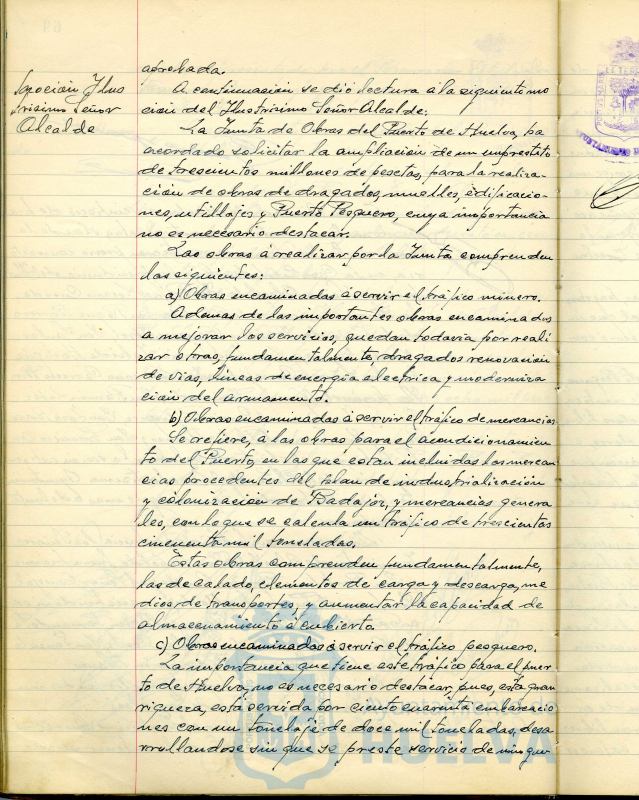 Moción Ilus
trísimo Señor
Alcalde
aprobada.
A continuación se dió lectura á la siguiente mo
ción del Ilustrísimo Señor Alcalde:
La Junta de Obras del Puerto de Huelva, ha
acordado solicitar la ampliación de un empréstito
de trescientos millones de pesetas, para la realiza-
ción de obras de dragados, muelles, edificacio-
nes, utillajes y Puerto Pesquero, cuya importancia
no es necesario destacar.
Las obras á realizar por la Junta comprenden
las siguientes:
a) Obras encaminadas á servir el tráfico minero.
Ademas de las importantes obras encaminadas
a mejorar los servicios, quedan todavia por reali
zar otras, fundamentalmente, dragados renovación
de vias, lineas de energía electrica y moderniza
ción del armamento.
b) Obras encaminadas á servir el tráfico de mercancias
Se refiere, á las obras para el acondicionamien
to del Puerto, en las que estan incluidas las mercan
cias procedentes del plan de industrialización
y colonización de Badajoz, y mercancias genera
les, con lo que se calcula un tráfico de trescientas
cincuenta mil toneladas.
Estas obras comprenden fundamentalmente,
las de calado, elementos de carga y descarga, me
dios de transportes, y aumentar la capacidad de
almacenamiento á cubierto.
c) Obras encaminadas á servir el tráfico pesquero.
La importancia que tiene este tráfico para el puer
to de Huelva, no es necesario destacar, pues, esta gran
riqueza, está servida por ciento cuarenta embarcacio
nes con un tonelaje de doce mil toneladas, desa
rrollandose sin que se preste servicio de ningu-
HUELVA